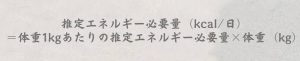 推定エネルギー必要量（kcal/日）
＝体重1kgあたりの推定エネルギー必要量×体重（kg）